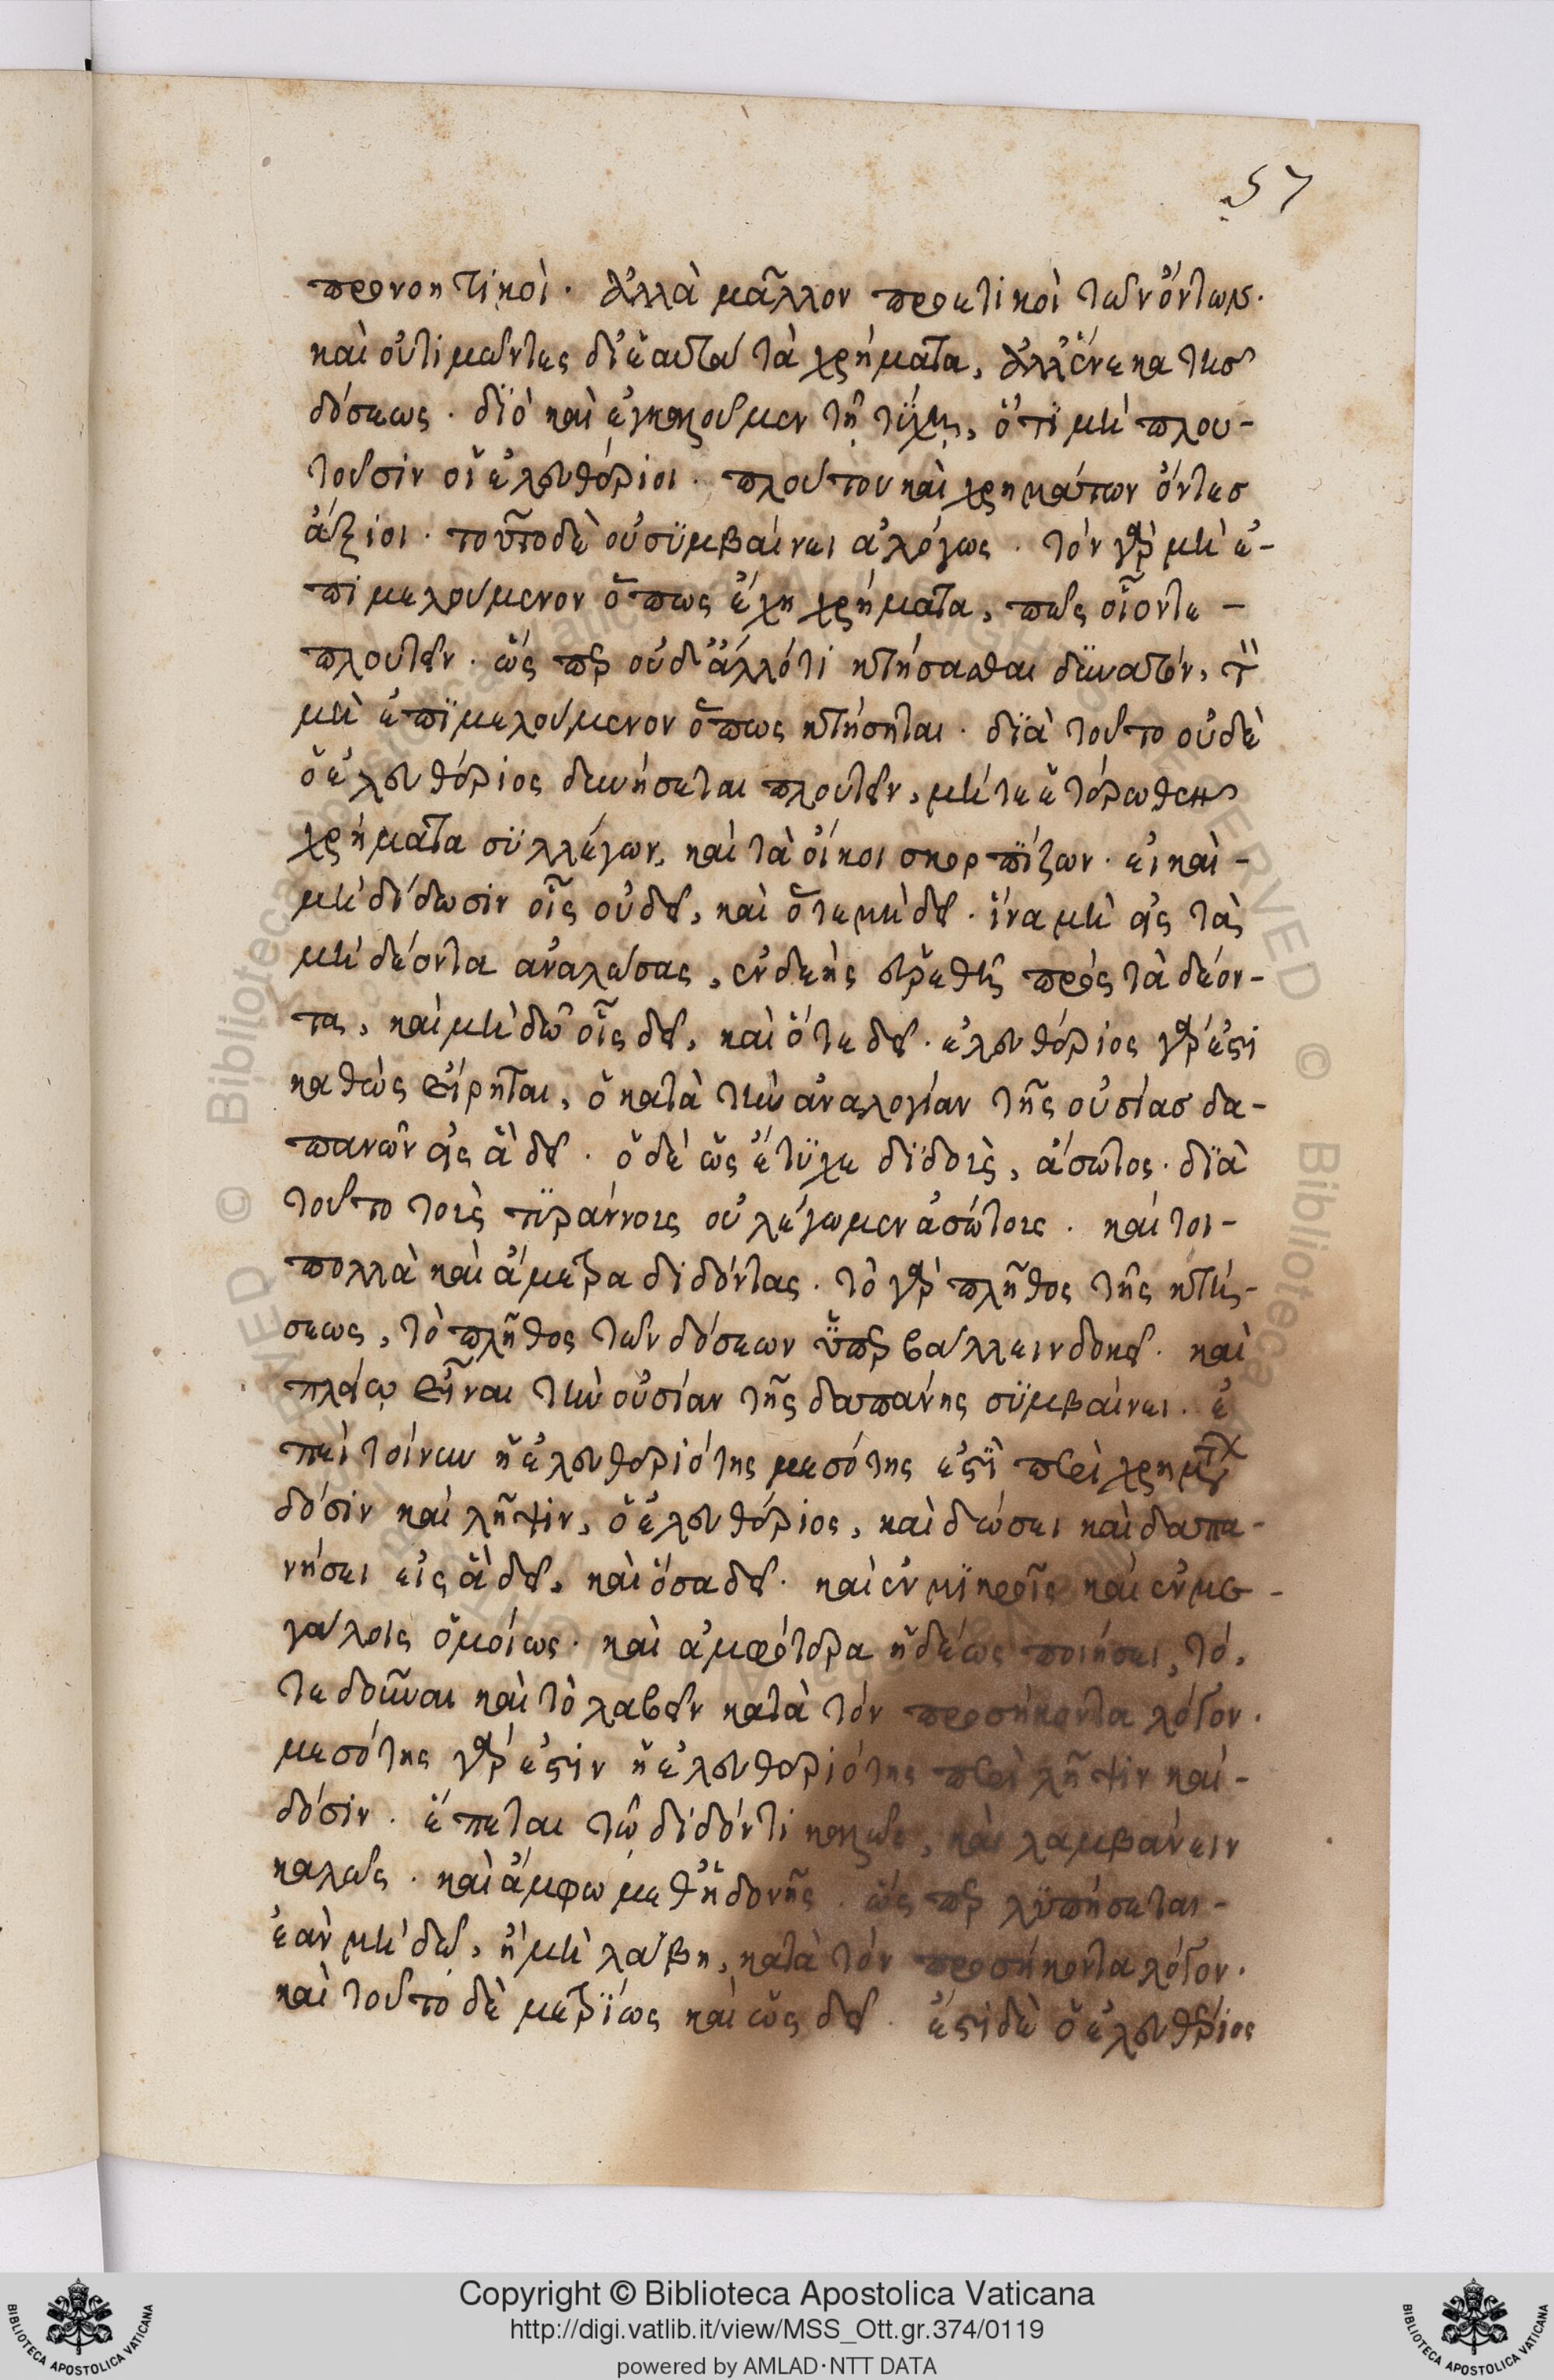 57
προνοητικοὶ. ἀλλὰ μᾶλλον προετικοὶ τῶν ὄντων.
καὶ οὐ τιμῶντες δι' ἑαυτὰ τὰ χρήματα, ἀλλ' ἕνεκα τῆσ
δόσεως. διὸ καὶ ἐγκαλοῦμεν τῆ τύχη, ὅτι μὴ πλου-
τοῦσιν οἱ ἐλευθέριοι. πλούτου καὶ χρημάτων ὄντεσ
ἄξιοι. τοῦτο δὲ οὐ συμβαίνει ἀλόγως. τὸν γὰρ μὴ ἐ-
πιμελούμενον ὅπως ἔχη χρήματα, πῶς οἷόντε -
πλουτεῖν. ὥσπερ οὐδ' ἄλλό τι κτήσασθαι δυνατόν, τὸν
μὴ ἐπιμελούμενον ὅπως κτήσηται. διὰ τοῦτο οὐδὲ
ὁ ἐλευθέριος δυνήσεται πλουτεῖν, μήτε ἑτέρωθεν
χρήματα συλλέγων, καὶ τὰ οἴκοι σκορπίζων. εἰ καὶ -
μὴ δίδωσιν οἷς οὐ δεῖ, καὶ ὅτε μὴ δεῖ. ἵνα μὴ εἰς τὰ
μὴ δέοντα ἀναλώσας, ἐνδεὴς εὑρεθῆ πρὸς τὰ δέον-
τα, καὶ μὴ δῶ οἷς δεῖ, καὶ ὅτε δεῖ. ἐλευθέριος γάρ ἐστι
καθὼς εἴρηται, ὁ κατὰ τὴν ἀναλογίαν τῆς οὐσίασ δα-
πανῶν εἰς ἃ δεῖ. ὁ δὲ ὡς ἔτυχε διδοὺς, ἄσωτος. διὰ
τοῦτο τοὺς τυράννους οὐ λέγωμεν ἀσώτους. καίτοι -
πολλὰ καὶ ἄμετρα διδόντας. τὸ γὰρ πλῆθος τῆς κτή-
σεως, τὸ πλῆθος τῶν δόσεων ὑπερβάλλειν δοκεῖ. καὶ
πλείω εἶναι τὴν οὐσίαν τῆς δαπάνης συμβαίνει. ἐ
πεὶ τοίνυν ἡ ἐλευθεριότης μεσότης ἐστὶ περὶ χρημάτων
δόσιν καὶ λῆψιν, ὁ ἐλευθέριος, καὶ δώσει καὶ δαπα-
νήσει εἰς ἃ δεῖ, καὶ ὅσα δεῖ. καὶ ἐν μικροῖς καὶ ἐν με -
γάλοις ὁμοίως. καὶ ἀμφότερα ἡδέως ποιήσει, τό,
τε δοῦναι καὶ τὸ λαβεῖν κατὰ τὸν προσήκοντα λόγον.
μεσότης γάρ ἐστιν ἡ ἐλευθεριότης περὶ λῆψιν καὶ -
δόσιν. ἕπεται τῶ διδόντι καλῶς, καὶ λαμβάνειν
καλῶς. καὶ ἄμφω μεθ' ἡδονῆς. ὥσπερ λυπήσεται -
ἐὰν μὴ δῶ, ἢ μὴ λάβη, κατὰ τὸν προσήκοντα λόγον.
καὶ τοῦτο δὲ μετρίως καὶ ὡς δεῖ. ἔστι δὲ ὁ ἐλευθέριος
Copyright © Biblioteca Apostolica Vaticana
http://digi.vatlib.it/view/MSS_Ott.gr.374/0119
powered by AMLAD·NTT DATA